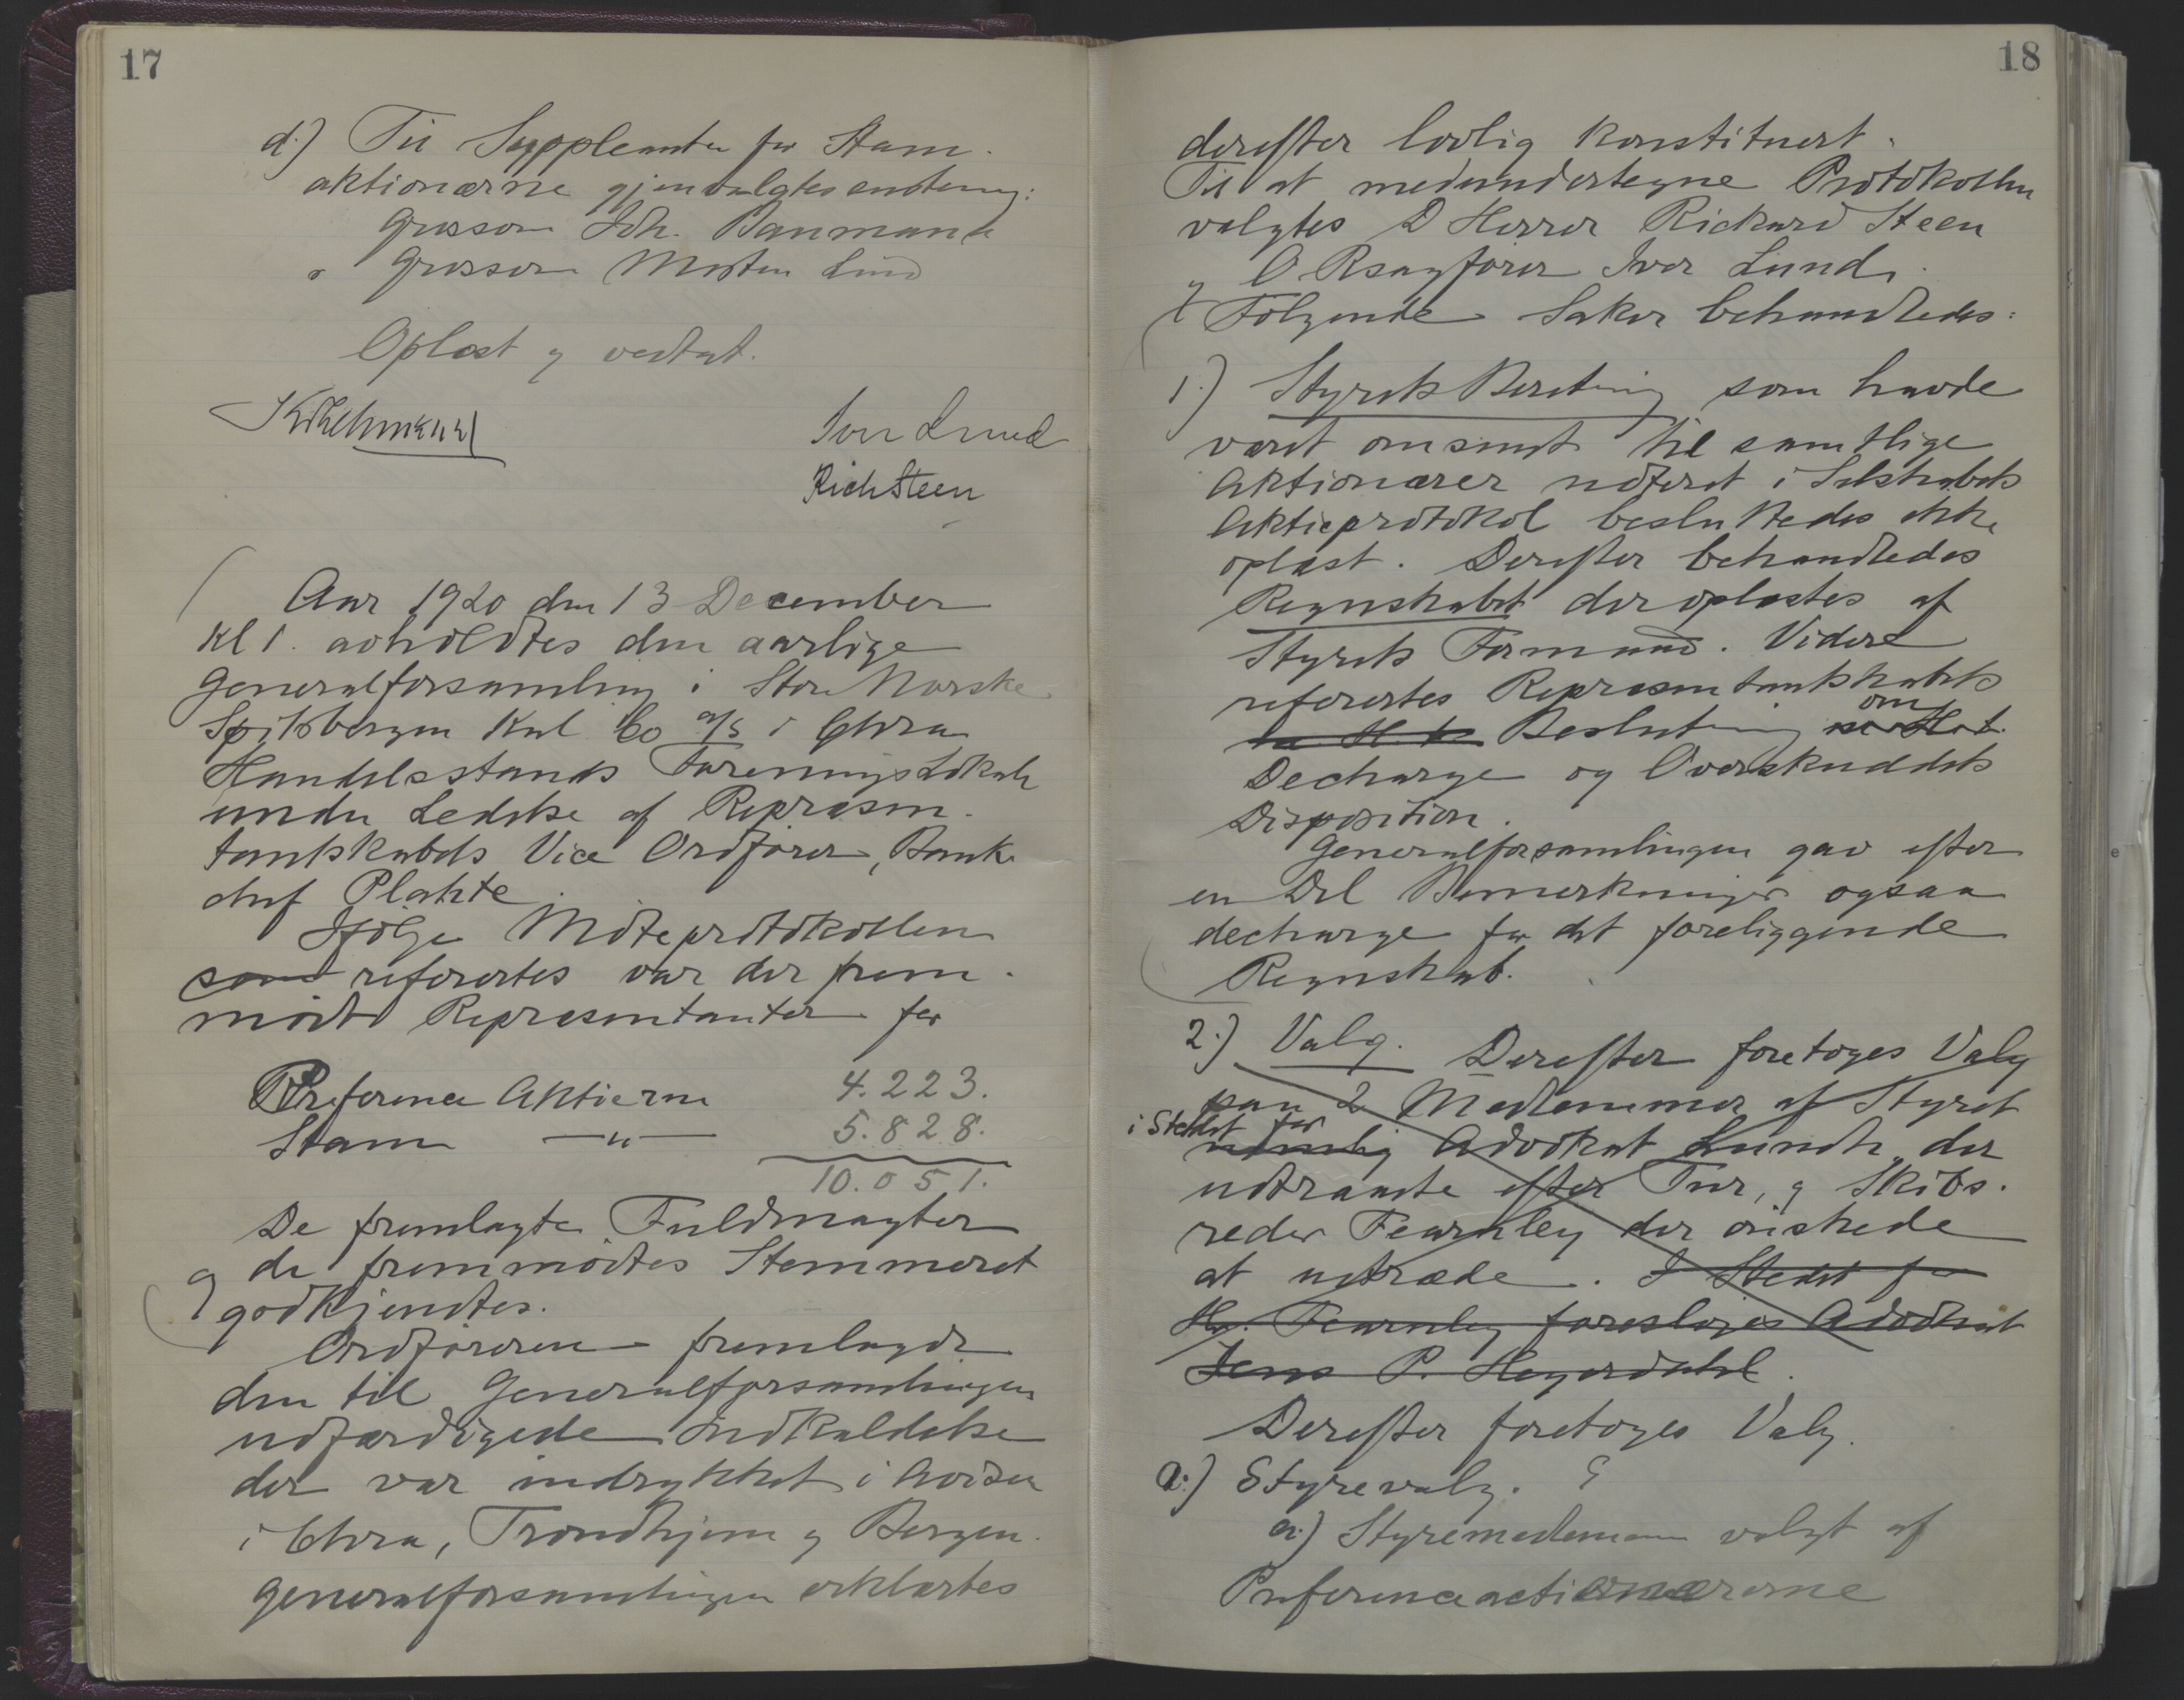 17
d.) Til Suppleanter for Stam-
aktionærne gjenvalgtes enstemmig:
Grosserer Joh. Baumann
o Grosserer Morten Lind
Oplæst og vedtat.
Ivar Lund
Rich Steen
Aar 1920 den 13 December
Kl 1. avholdtes den aarlige
Generalforsamling i Store Norske
Spitsbergen Kul Co A/S i Chra
Handelsstands Forenings Lokale
under Ledelse af Repræsen-
tantskabets Vice Ordfører, Bank
chef Plahte.
Ifølge Møteprotokollen
som refereertes var der frem-
mødt Repræsentanter for
Preference Aktierne 4.223.
Stam —"— 5.828.
10.051.
De fremlagte Fuldmagter
og de fremmødtes Stemmeret
godkjendtes.
Ordføreren fremlagde
den til Generalforsamlingen
udfærdigede Indkaldelse
der var indrykket i Aviser
i Chra, Trondhjem og Bergen.
Generalforsamlingen erklærtes
18
derefter lovlig konstituert.
Til at medundertegne Protokollen
valgtes D Herrer Rickard Steen
og O.Rsagfører Ivar Lund.
Følgende Saker behandledes:
1.) Styrets Beretning som havde
været omsendt til samtlige
Aktionærer noteret i Selskabets
Aktieprotokol besluttedes ikke
oplæst. Derefter behandledes
Regnskabet der oplæstes af
Styrets Formand. Videre
referertes Repræsentantskabets
Beslutning om
Decharge og Overskuddets
Disposition.
Generalforsamlingen gav efter
en Del Bemerkninger ogsaa
decharge for det foreliggende
Regnskab.
2.) Valg. Derefter foretoges Valg
paa 2 Medlemmer af Styret
i Stedet for nemlig Advokat Lundh der
udtraadte efter Tur, og Skibs-
reder Fearnley der ønskede
at udtræde. I Stedet for
Hr. Fearnley foresloges Advokat
Jens P. Heyerdahl.
Derefter foretoges Valg.
a.) Styrevalg.
a.) Styremedlemmer valgt af
Preferenceactionærerne